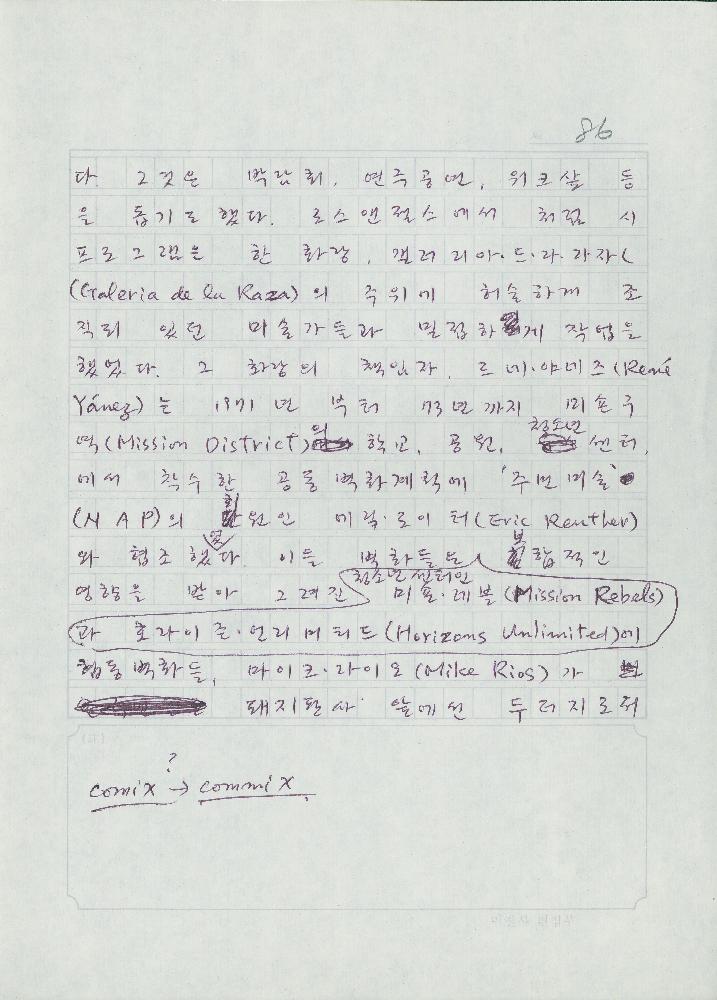 86
다. 그것은 박람회, 연주공연, 워크샾 등
을 돕기도 했다. 로스앤젤스에서 처럼 시
프로그램은 한 화랑, 갤러리아·드·라·라자(
(Galeria de la Raza)의 주위에 허술하게 조
직되 있던 미술가들과 밀접하게 작업을
했었다. 그 화랑의 책임자, 르네·야네즈(René
Yánez)는 1971년 부터 73년까지 미숀구
역(Mission District)의 학교, 공원, 청소년 센터,
에서 착수한 공동벽화계획에 '주변미술'
(N A P)의 회원인 에릭·로이터(Eric Reuther)
와 협조했었다. 이들 벽화들은 복합적인
청소년센터인
영향을 받아 그려진 미숀·레블(Mission Rebels)
과 호라이즌·언리미티드(Horizons Unlimited)에
협동벽화들, 마이크·라이오(Mike Rios)가
돼지판사 앞에선 두더지로서
?
comix → commix